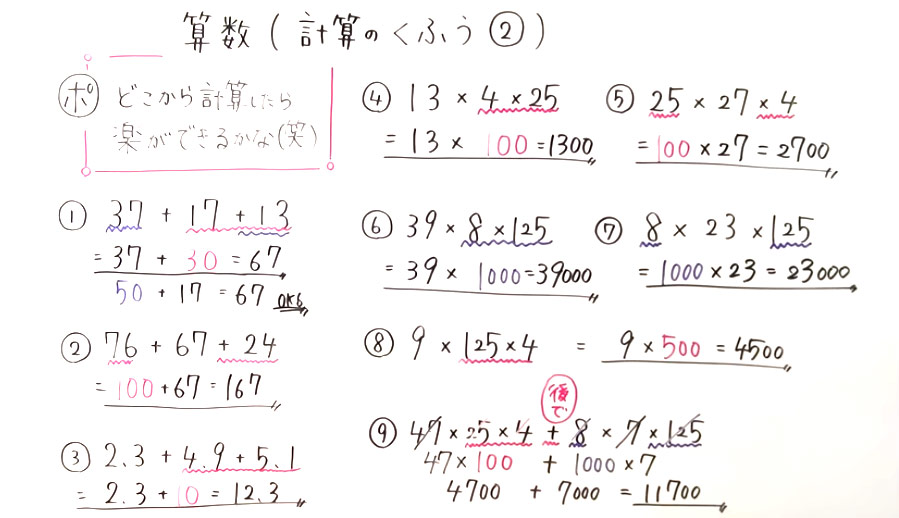 算数(計算のくふう②)
ポ どこから計算したら
楽ができるかな(笑)
① 37 + 17 + 13
= 37 + 30 = 67
50 + 17 = 67 OKも
② 76 + 67 + 24
= 100 + 67 = 167
③ 2.3 + 4.9 + 5.1
= 2.3 + 10 = 12.3
④ 13 × 4 × 25
= 13 × 100 = 1300
⑤ 25 × 27 × 4
= 100 × 27 = 2700
⑥ 39 × 8 × 125
= 39 × 1000 = 39000
⑦ 8 × 23 × 125
= 1000 × 23 = 23000
⑧ 9 × 125 × 4 = 9 × 500 = 4500
後で
⑨ 47 × 25 × 4 + 8 × 7 × 125
47 × 100 + 1000 × 7
4700 + 7000 = 11700